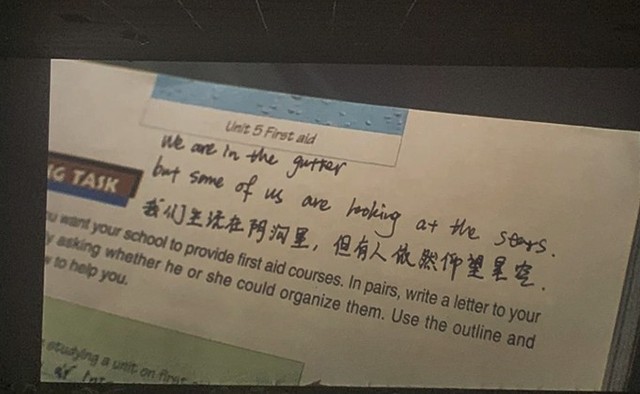 Unit 5 First aid
We are in the gutter
but some of us are looking at the stars.
我们生活在阴沟里，但有人依然仰望星空.
G TASK
u want your school to provide first aid courses. In pairs, write a letter to your
y asking whether he or she could organize them. Use the outline and
w to help you.
studying a unit on first